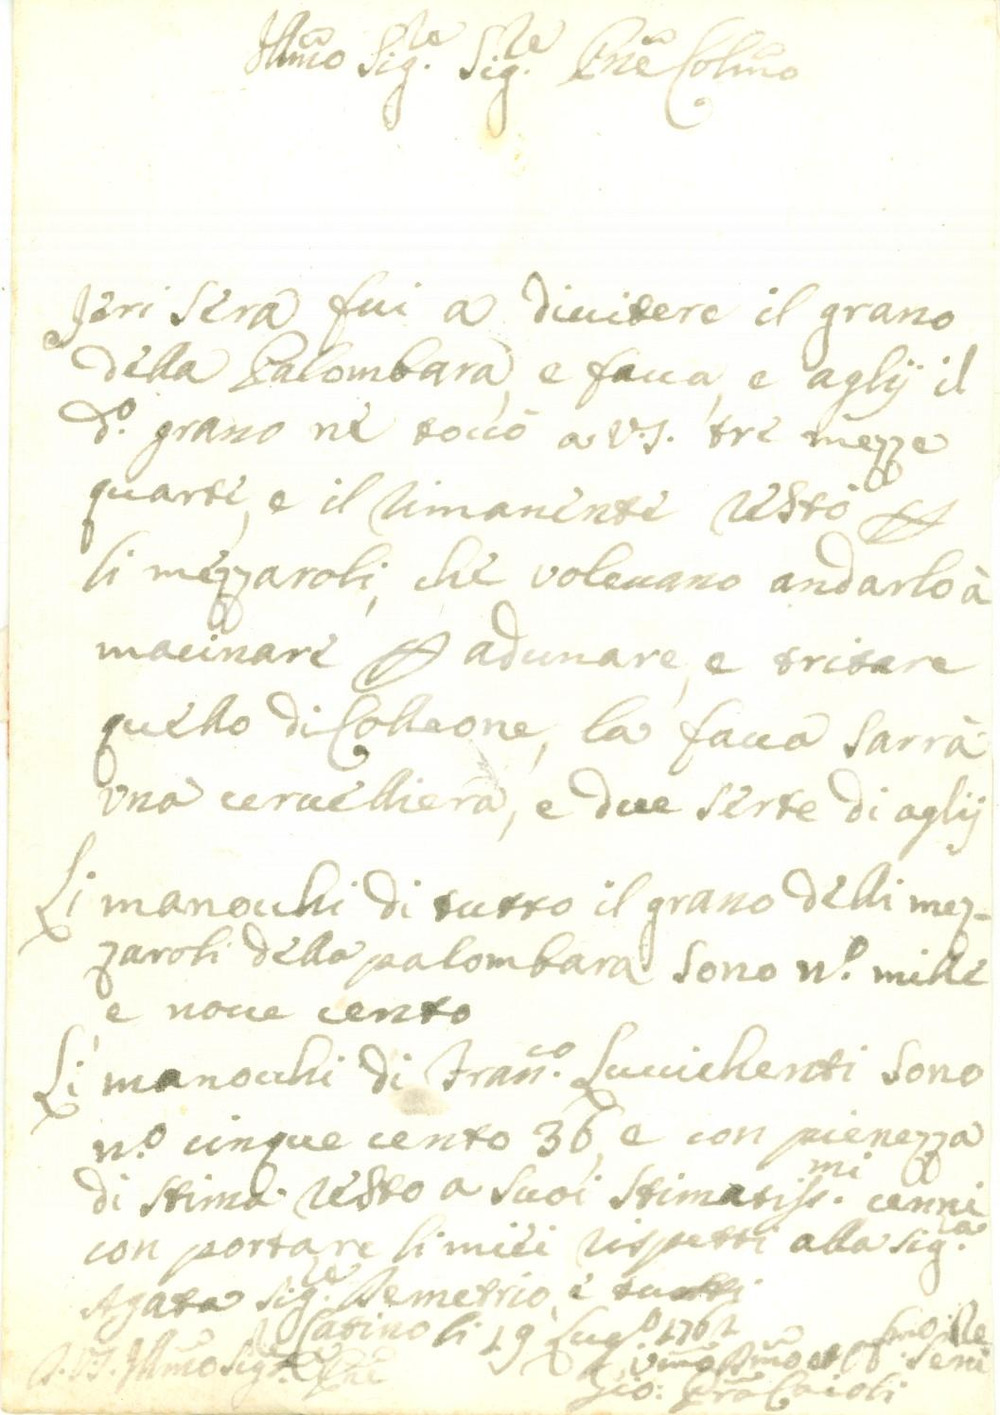 Ill.mo Sig.re Sig.re P.ne Col.mo
Jeri sera fui a diuidere il grano
della Palombara, e faua, e aglij il
d.o grano ne toccò a V.S. tre mezze
quarte, e il rimanente restò
li mezzaroli, che voleuano andarlo à
macinare adunare, e tritare
quello di Colleone, la faua sarrà
una ceruelliera, e due serte di aglij
Li manocchi di tutto il grano delli mez-
zaroli della palombara sono n.o mille
e noue cento
Li manocchi di Fran.co Luccichenti sono
n.o cinque cento 36, e con pienezza
di stima resto a suoi stimatiss.mi cenni
con portare li miei rispetti alla Sig.ra
Agata Sig.re Demetrio, e tutti
Casino li 19 Lug.o 1762
D. V.S. Ill.mo Sig.re P.ne
Gio: Caioli